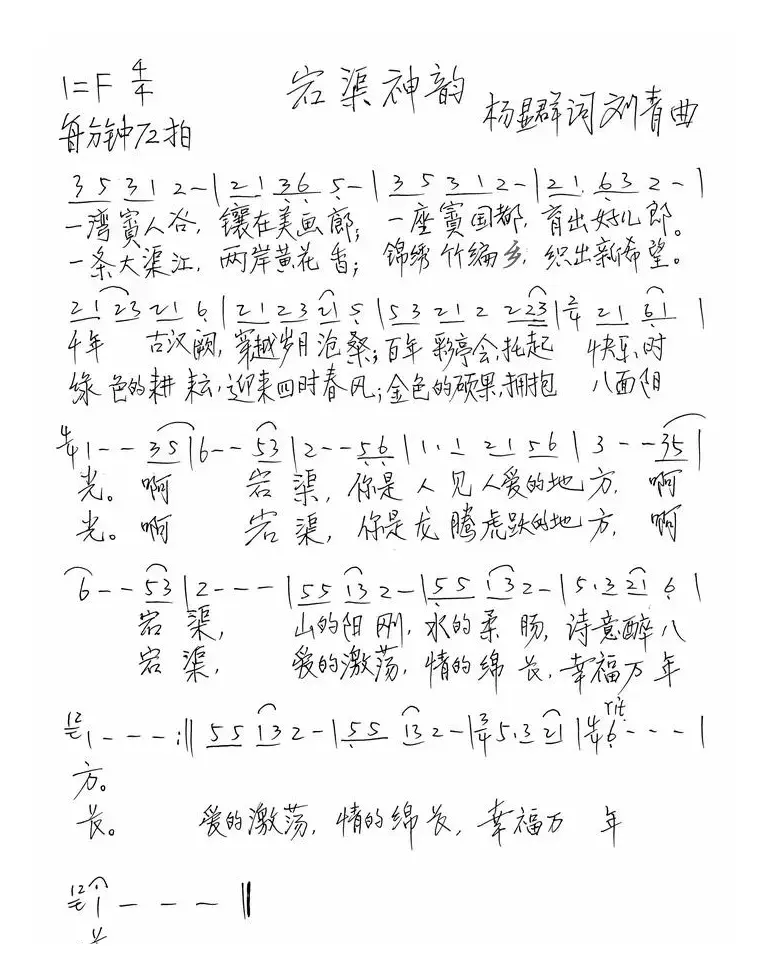 1=F 4/4 宕渠神韵
每分钟72拍 杨显群词 刘青曲
3 5 3 1 2 - | 2 1 3 6 5 - | 3 5 3 1 2 - | 2 1 6 3 2 - |
一湾賨人谷, 镶在美画廊; 一座賨国都, 育出好儿郎。
一条大渠江, 两岸黄花香; 锦绣竹编乡, 织出新希望。
2 1 2 3 2 1 6 | 2 1 2 3 2 1 5 | 5 3 2 1 2 2 2 3 | 2/4 2 1 6 1 |
千年 古汉阙, 穿越岁月沧桑; 百年彩亭会, 托起 快乐时
绿色的耕耘, 迎来四时春风; 金色的硕果, 拥抱 八面阳
4/4 1 - - 3 5 | 6 - - 5 3 | 2 - - 5 6 | 1. 1 2 1 5 6 | 3 - - 3 5 |
光。啊 宕渠, 你是人见人爱的地方, 啊
光。啊 宕渠, 你是龙腾虎跃的地方, 啊
6 - - 5 3 | 2 - - - | 5 5 1 3 2 - | 5 5 1 3 2 - | 5. 3 2 1 6 |
宕渠, 山的阳刚, 水的柔肠, 诗意醉八
宕渠, 爱的激荡, 情的绵长, 幸福万年
12 1 - - - :‖ 5 5 1 3 2 - | 5 5 1 3 2 - | 3/4 5. 3 2 1 | 4/4 rit 6 - - - |
方。
长。 爱的激荡, 情的绵长, 幸福万 年
12 1 - - - ‖